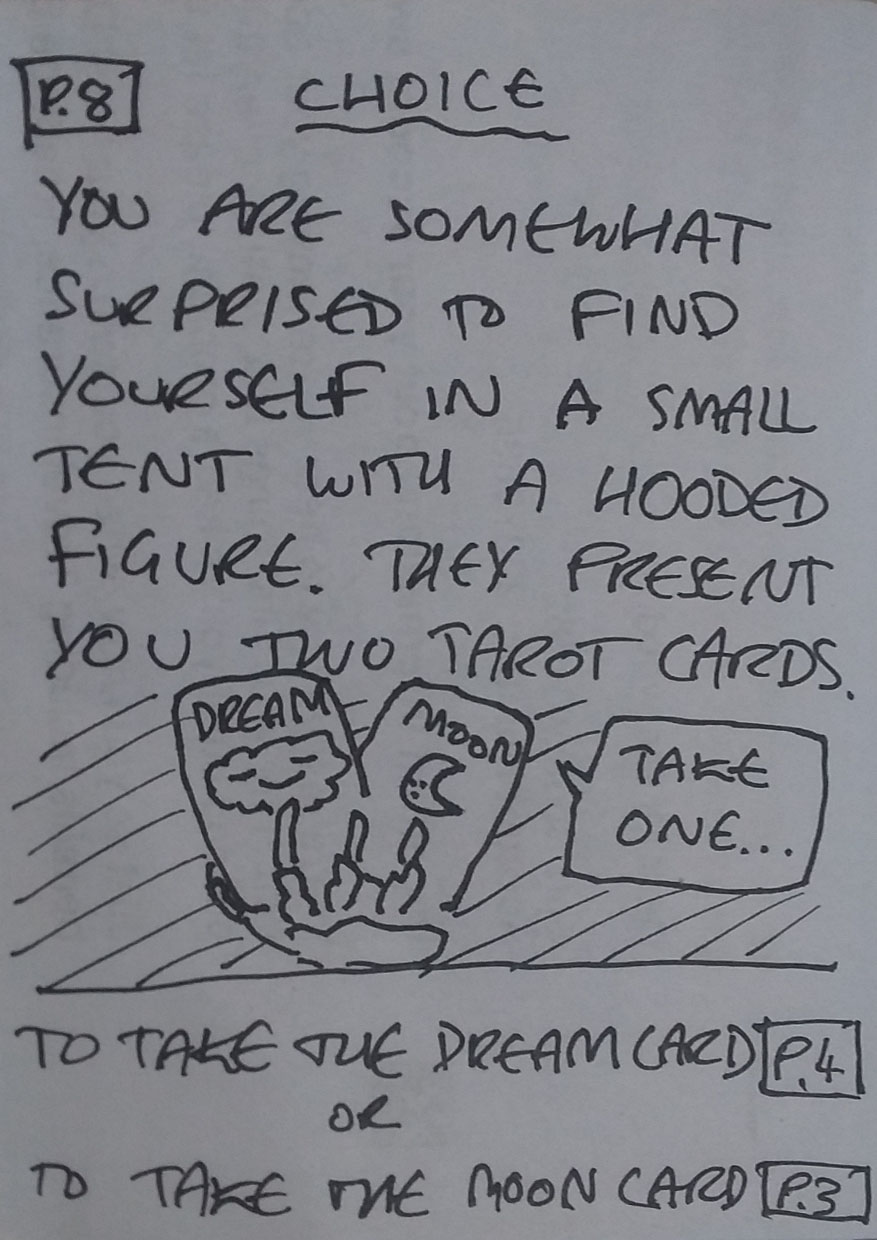 P.8 CHOICE
YOU ARE SOMEWHAT
SURPRISED TO FIND
YOURSELF IN A SMALL
TENT WITH A HOODED
FIGURE. THEY PRESENT
YOU TWO TAROT CARDS.
DREAM
MOON
TAKE
ONE...
TO TAKE THE DREAM CARD P.4
OR
TO TAKE THE MOON CARD P.3